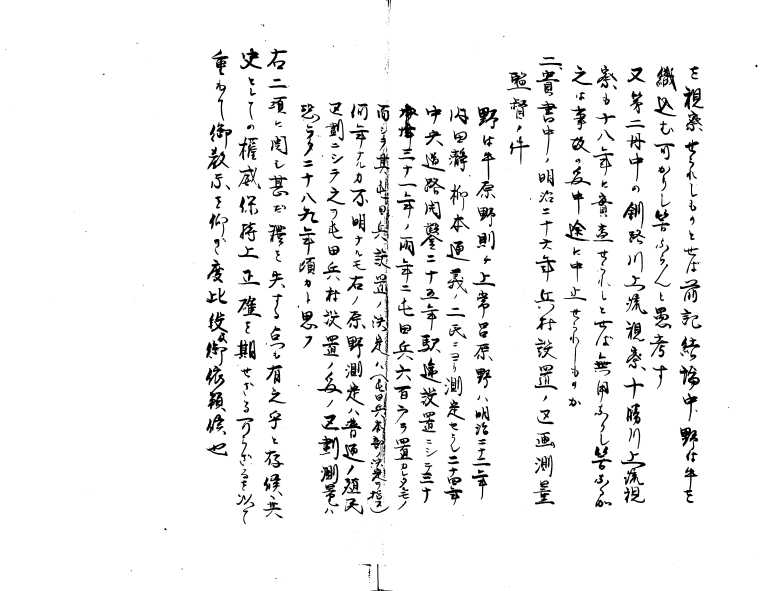 を視察せられしものとせば前記結論中野付牛を
織込む可かりし筈ならんと愚考す
又第二班中の釧路川上流視察十勝川上流視
察も十八年に実査せられしとせば無用なりし筈なるが
之は事故の為中途に中止せられしものか
二、貴書中ノ明治二十六年兵村設置ノ区画測量
監督ノ件
野付牛原野則チ上常呂原野ハ明治二十二年
内田瀞、柳本通義ノ二氏ニヨリ測定セラレ二十四年
中央道路開鑿二十五年駅逓設置ニシテ三十
三十一年ノ両年ニ屯田兵六百戸ヲ置カレタルモノ
而シテ其屯田兵設置ノ決定ハ(屯田兵本部ノ決定ヲ指ス)
何年ナルカ不明ナルモ右ノ原野測定ハ普通ノ殖民
区劃ニシテ之ヲ屯田兵村設置ノ為ノ区劃測量ハ
恐ラク二十八九年頃カト思フ
右二項に関し甚だ礼を失する点も有之乎と存候共
史としての権威保持上正確を期せざる可からざるを以て
重ねて御教示を仰ぎ度此段御依頼候也